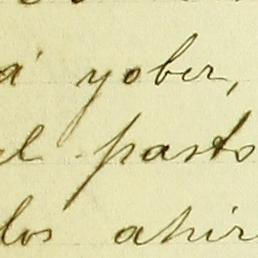 á yober,
el pasto
los ahir